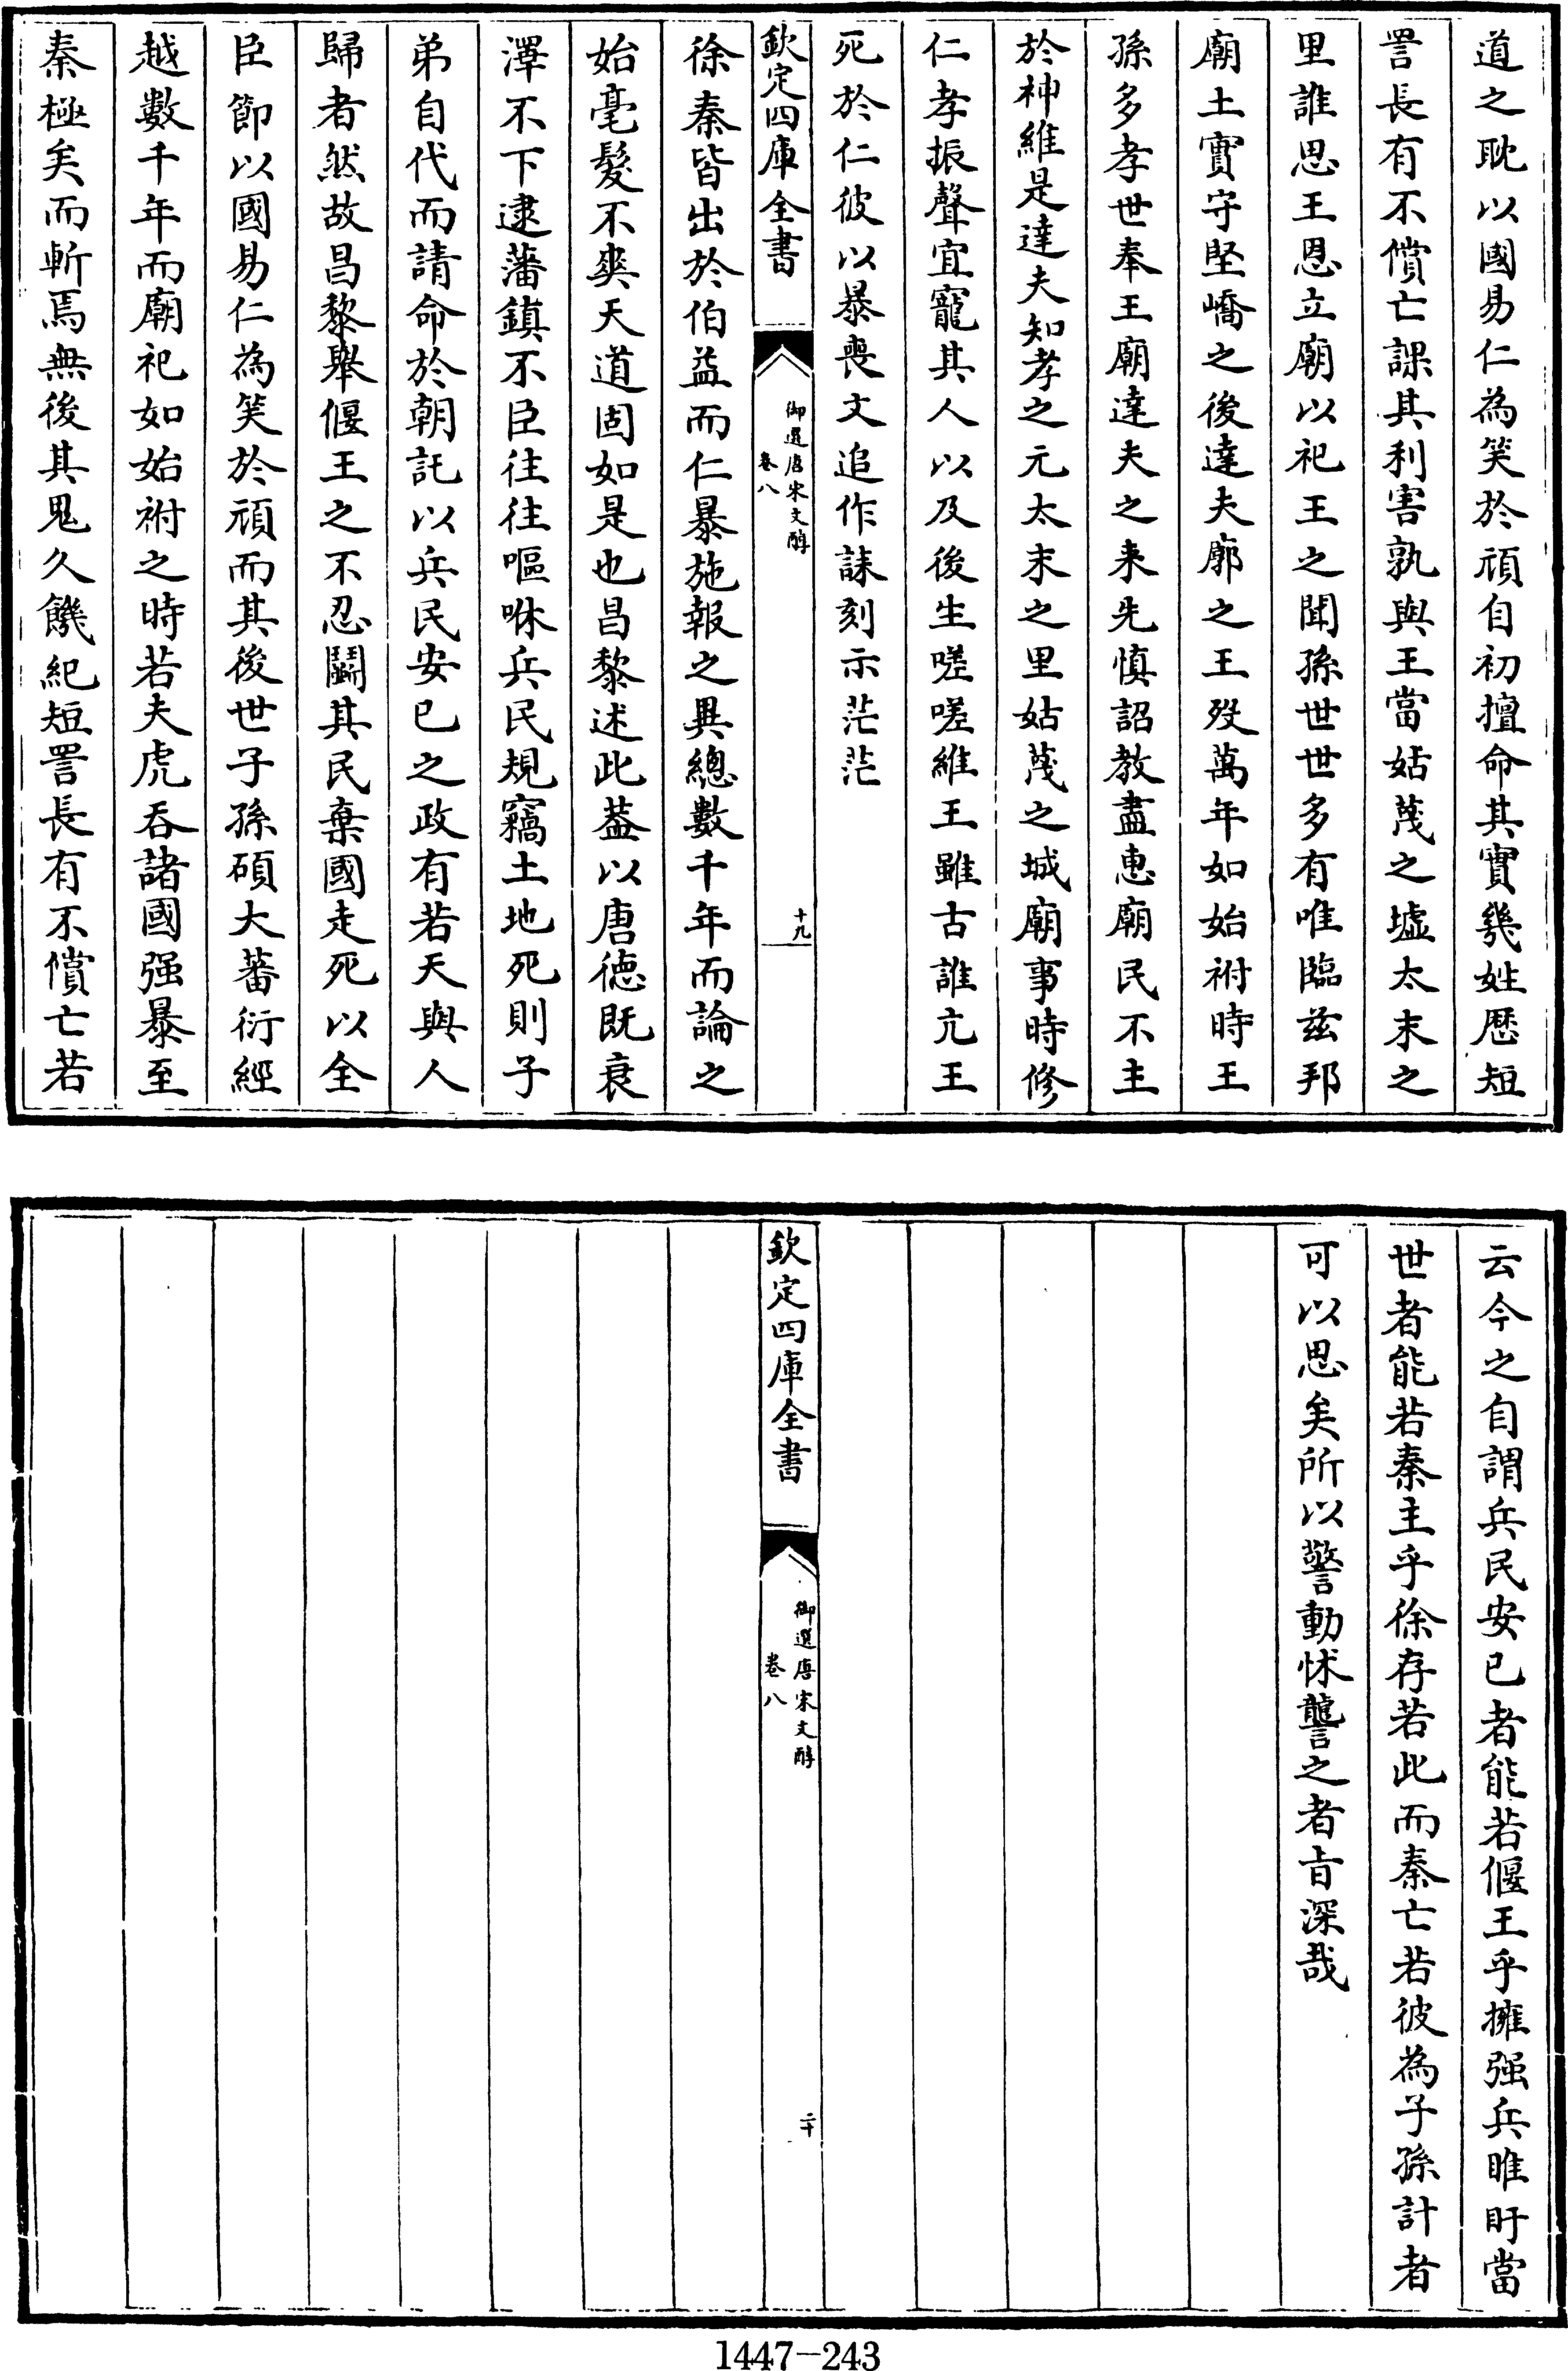 道之耽以國易仁為笑於頑自初擅命其實幾姓歴短
詈長有不償亡課其利害孰與王當姑蔑之墟太末之
里誰思王恩立廟以祀王之聞孫世世多有唯臨兹邦
廟土實守堅嶠之後達夫廓之王歿萬年如始祔時王
孫多孝世奉王廟達夫之来先慎詔教盡惠廟民不主
於神維是達夫知孝之元太末之里姑蔑之城廟事時修
仁孝振聲宜寵其人以及後生嗟嗟維王雖古誰亢王
死於仁彼以暴喪文追作誄刻示茫茫
欽定四庫全書
御選唐宋文醇
卷八
十九
徐秦皆出於伯益而仁暴施報之異總數千年而論之
始毫髮不爽天道固如是也昌黎述此葢以唐徳既衰
澤不下逮藩鎮不臣往往嘔咻兵民規竊土地死則子
弟自代而請命於朝託以兵民安已之政有若天與人
歸者然故昌黎舉偃王之不忍鬬其民棄國走死以全
臣節以國易仁為笑於頑而其後世子孫碩大蕃衍經
越數千年而廟祀如始祔之時若夫虎吞諸國强暴至
秦極矣而斬焉無後其鬼久饑紀短詈長有不償亡若
云今之自謂兵民安已者能若偃王乎擁强兵睢盱當
世者能若秦主乎徐存若此而秦亡若彼為子孫計者
可以思矣所以警動怵讋之者㫖深哉
欽定四庫全書
御選唐宋文醇
卷八
二十
1447-243